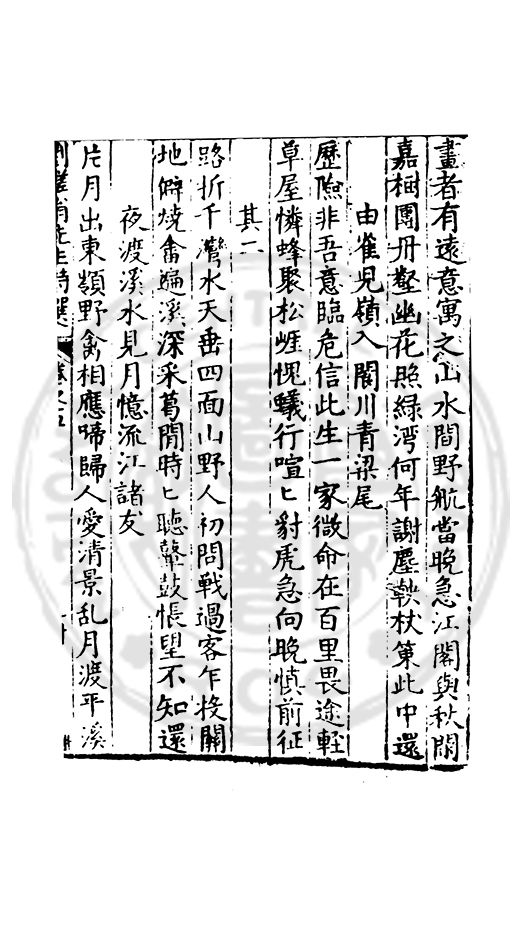 畫者有遠意寓之山水間野航當晚急江閣與秋閑
嘉樹團丹壑幽花照綠灣何年謝塵鞅杖策此中還
由雀見嶺入閬川青梁尾
歷險非吾意臨危信此生一家微命在百里畏途輕
草屋憐蜂聚松崕愧蟻行喧匕豺虎急向晚慎前征
其二
路折千灣水天垂四面山野人初問戰過客乍投關
地僻燒畬遍溪深采葛閒時匕聽鼙鼓悵望不知還
夜渡溪水見月憶流江諸友
片月出東嶺野禽相應啼歸人愛清景乱月渡平溪
先生詩選 卷之五